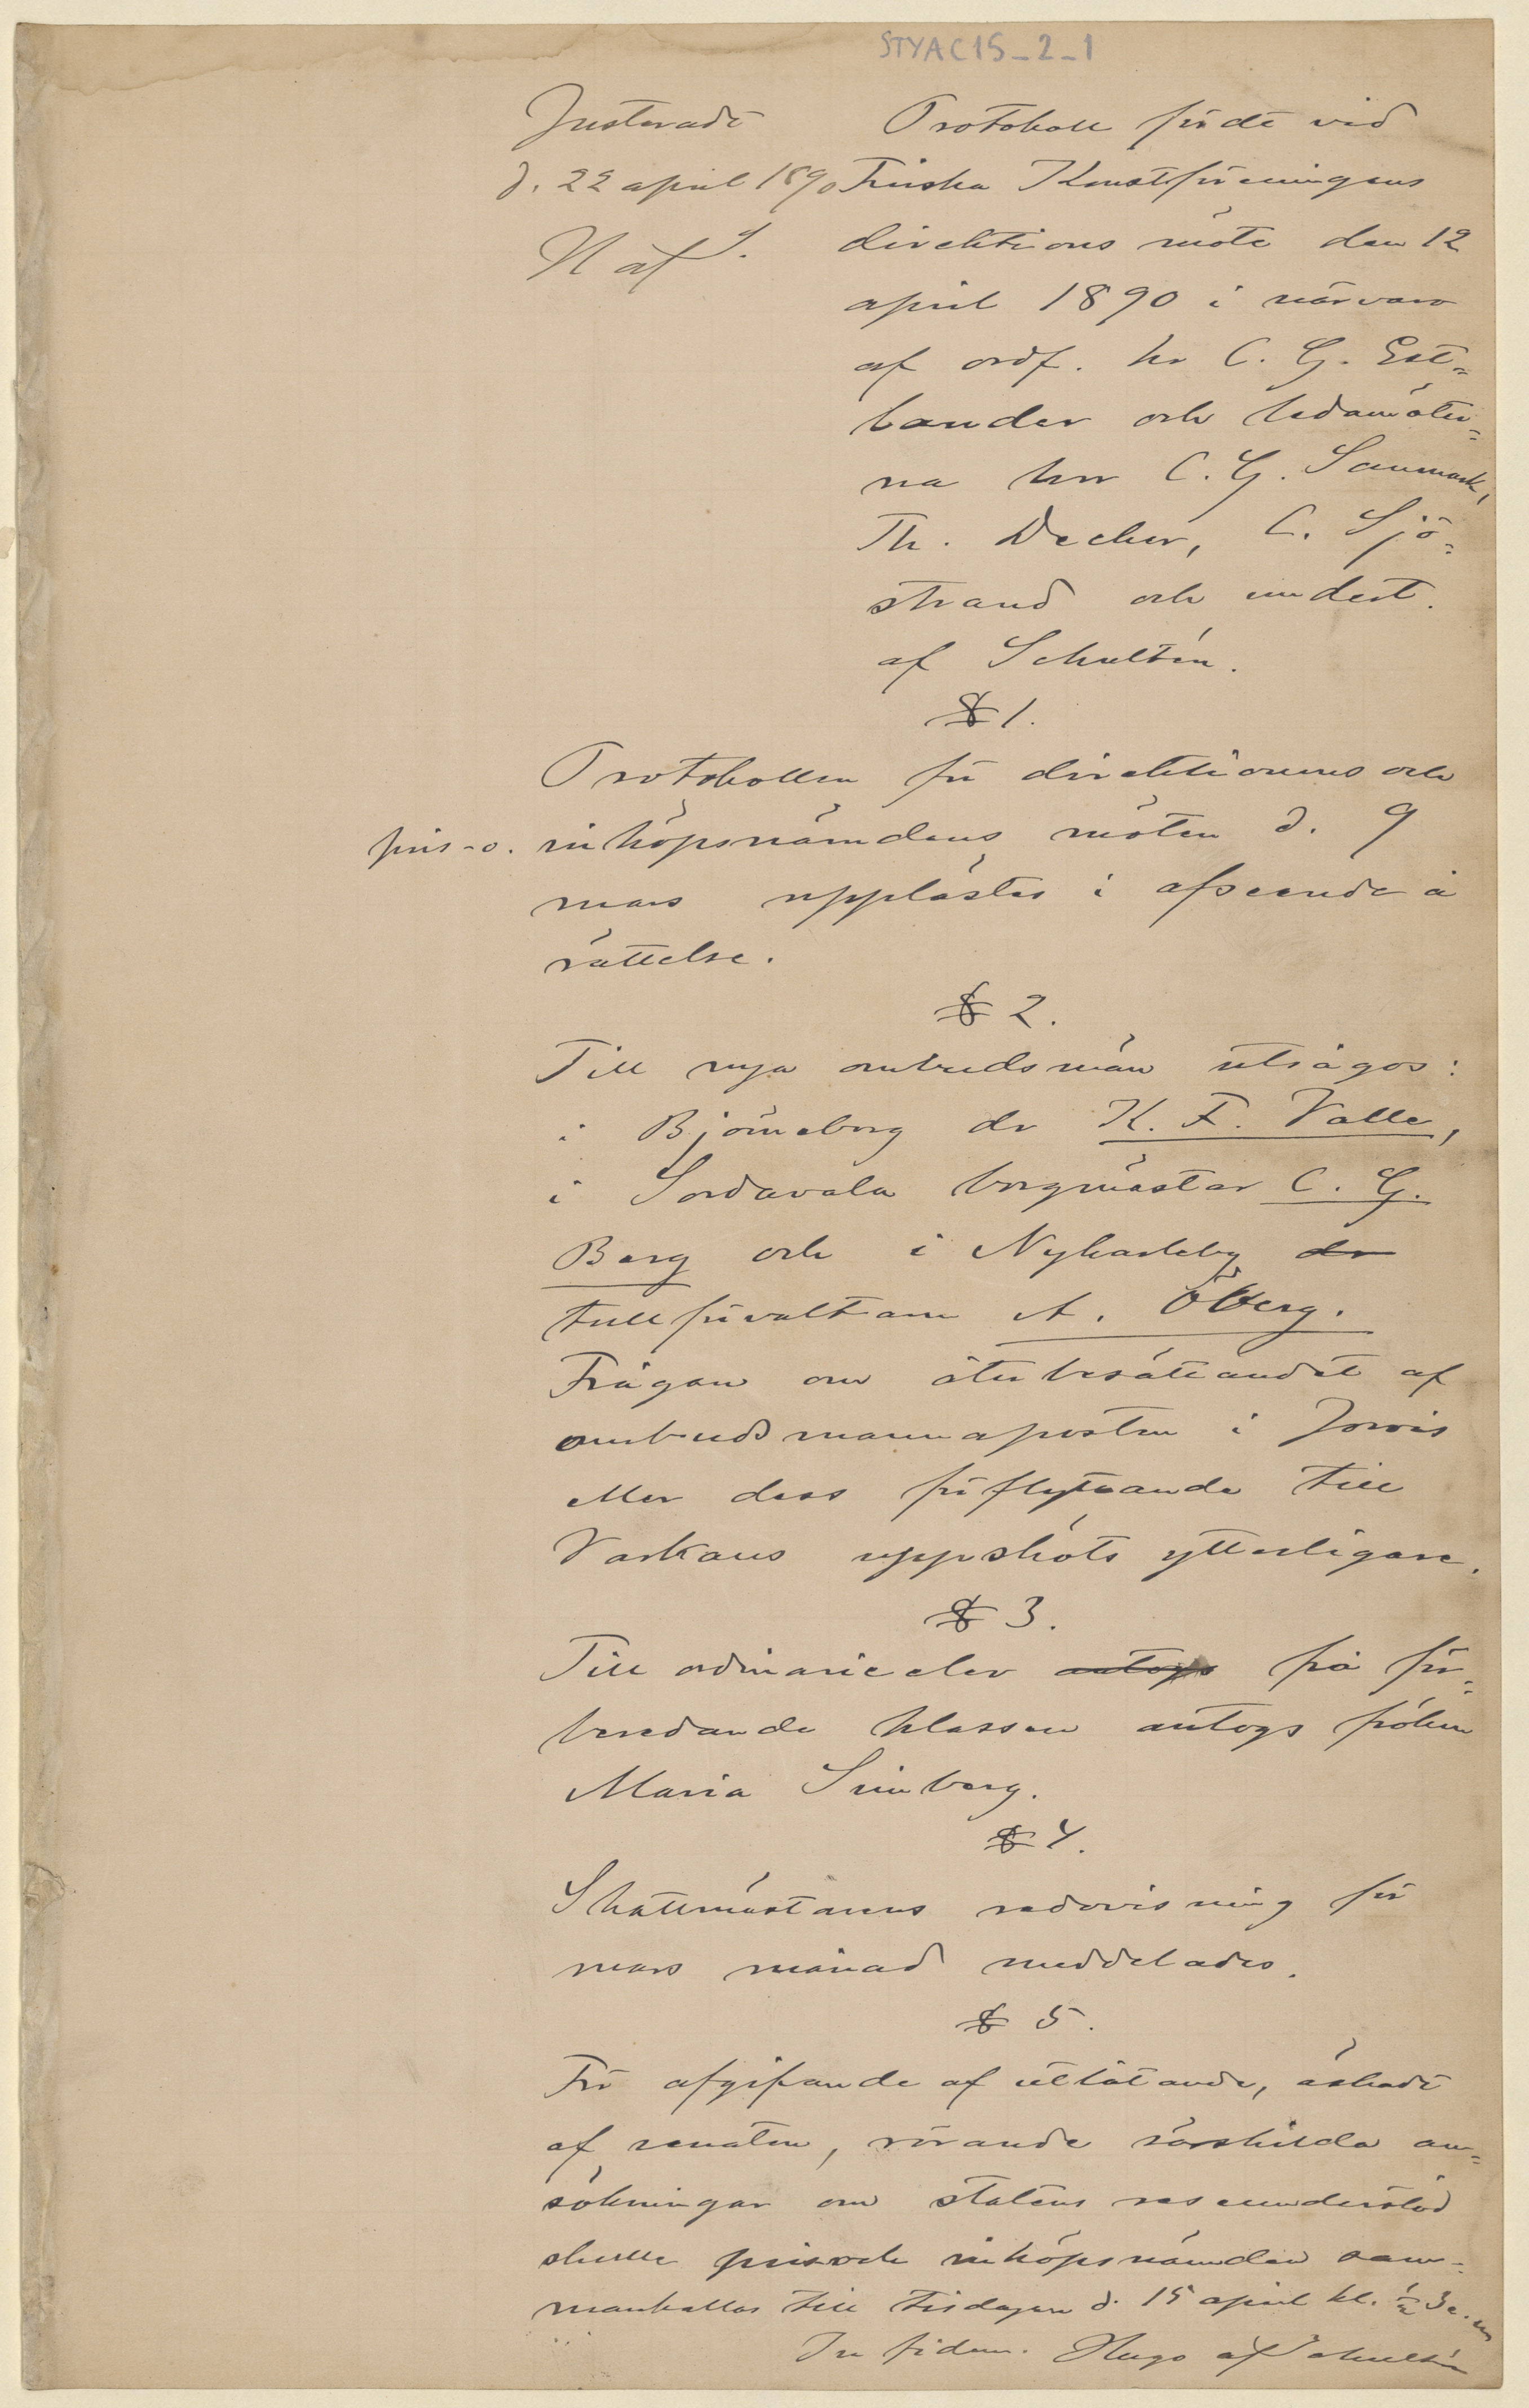 STYAC15_2_1
Justeradt
d. 22 april 1890
H af S.
Protokoll fördt vid
Finska Konstföreningens
direktions möte den 12
april 1890 i närvaro
af ordf. hr C. G. Est=
lander och ledamöter=
na hrr C. G. Sanmark,
Th. Decker, C. Sjö=
strand och undert.
af Schultén.
§ 1.
Protokollen för direktionens och
pris-o. inköpsnämdens möten d. 9
mars upplästes i afseende å
rättelse.
§ 2.
Till nya ombudsmän utsågos:
i Björneborg dr K. F. Valle,
i Sordavala borgmästar C. G.
Berg och i Nykarleby dr
tullförvaltaren A. Öberg.
Frågan om återbesättandet af
ombudsmannaposten i Jorois
eller dess förflyttande till
Varkaus uppsköts ytterligare.
§ 3.
Till ordinarie elev antogs på för=
beredande klassen antogs fröken
Maria Simberg.
§ 4.
Skattmästarens redovisning för
mars månad meddelades.
§ 5.
För afgifvande af utlåtande, äskadt
af senaten, rörande särskilda an=
sökningar om statens reseunderstöd
skulle pris och inköpsnämden sam=
mankallas till tisdagen d. 15 april kl. ½ 3 e.m
In fidem. Hugo af Schultén